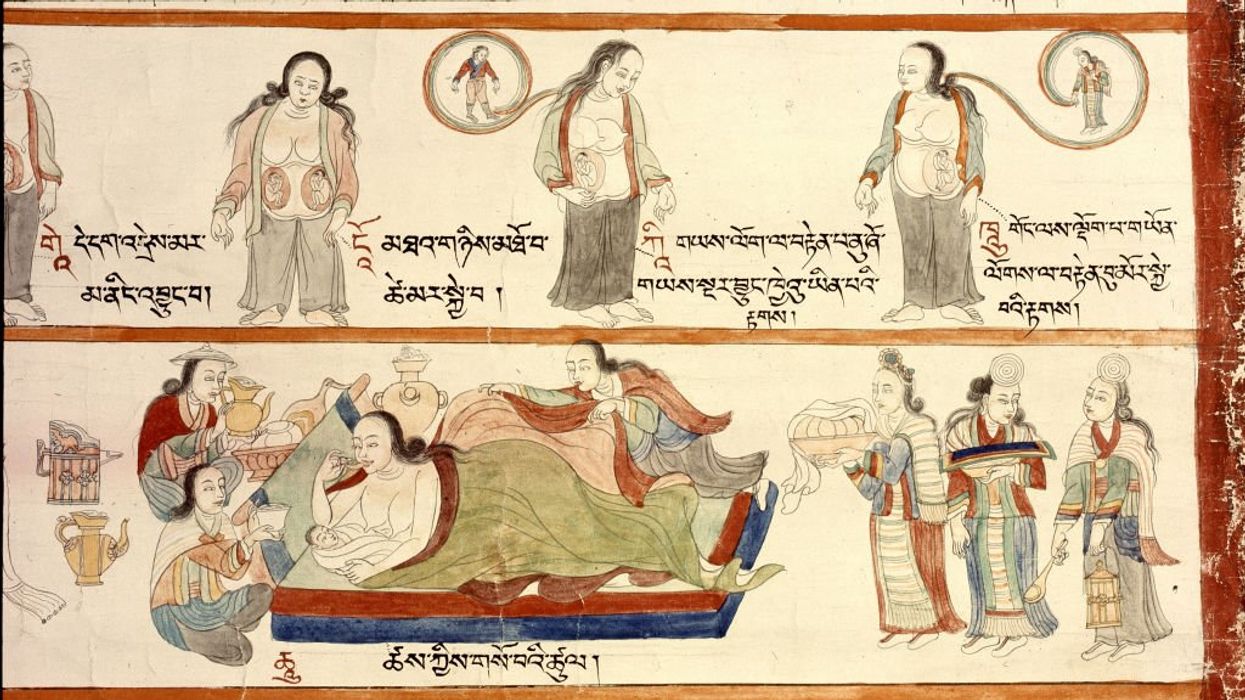 དེ་དག་འདྲེས་མར་
མ་ནིང་འབྱུང་བ།
མཐའ་གཉིས་མཐོ་བ་
ཚེ་མར་སྐྱེ་བ །
གཡས་ལོག་ལ་བརྟེན་པ་ནུ་ཞོ་
གཡས་སྔར་བྱུང་ཁྱེའུ་ཡིན་པའི་
རྟགས།
གོང་ལས་ལྡོག་པ་གཡོན་
ལོགས་ལ་བརྟེན་བུ་མོར་སྐྱེ་
བའི་རྟགས།
ཚས་ཀྱིས་གསོ་བའི་ཚུལ །